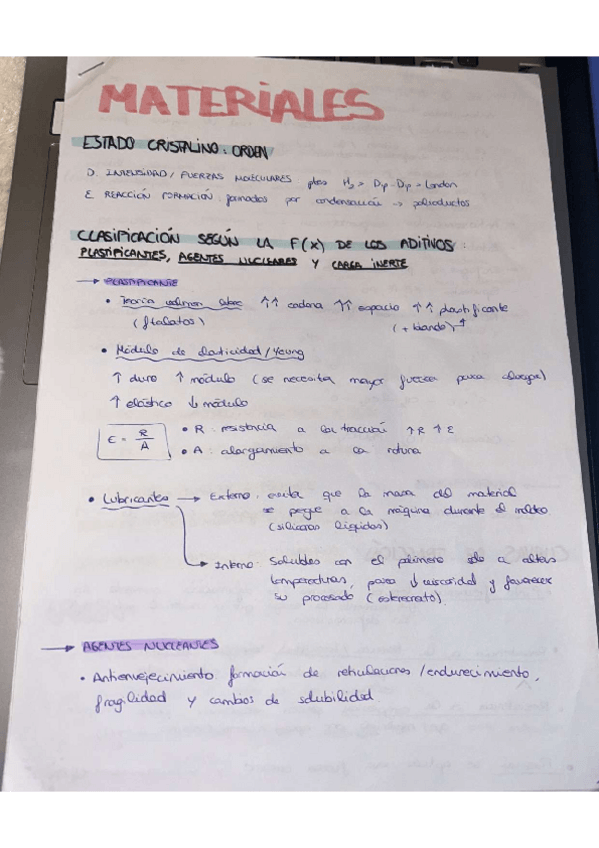 MATERIALES
ESTADO CRISTALINO: ORDEN
D. INTENSIDAD / FUERZAS MOLECULARES ptes H2 > Dp-Dp > London
E. REACCIÓN FORMACIÓN: formados por condensación → polioductos
CLASIFICACIÓN SEGÚN LA F(X) DE LOS ADITIVOS:
PLASTIFICANTES, AGENTES NUCLEARES Y CARGA INERTE
→ PLASTIFICANTE
• Teoría volumen libre ↑↑ cadena ↑↑ espacio ↑↑ plastificante
(ftalatos) (+ blando)
• Módulo de elasticidad / Young
↑ duro ↑ módulo (se necesita mayor fuerza para alargar)
↑ elástico ↓ módulo
E = R/A • R: resistencia a la tracción ↑R ↑E
• A: alargamiento a la rotura
• Lubricantes → Externo: evita que la masa del material
se pegue a la máquina durante el moldeo
(siliconas líquidas)
→ Interno: Solubles con el polímero solo a altas
temperaturas, para ↓ viscosidad y favorecer
su procesado (estearato).
→ AGENTES NUCLEANTES
• Antienvejecimiento formación de reticulaciones / endurecimiento,
fragilidad y cambios de solubilidad.